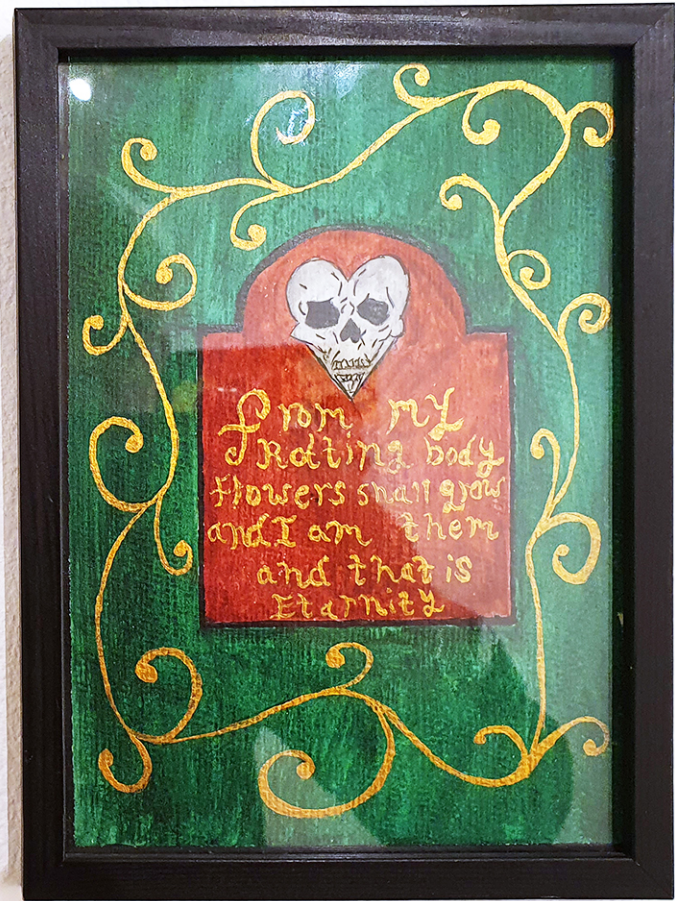 From my
Rotting body
flowers shall grow
and I am them
and that is
Etarnity